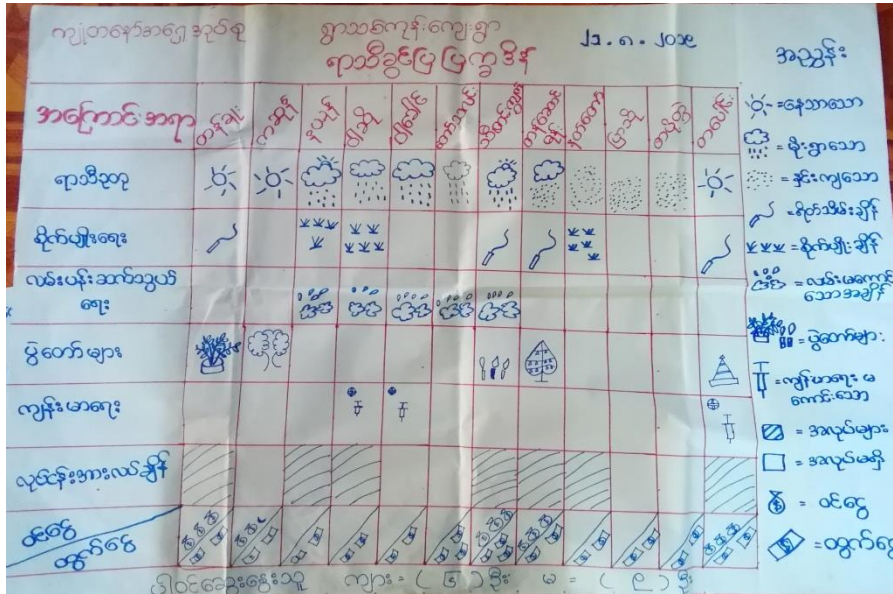 ရွာသစ်ကုန်းကျေးရွာ
ရာသီခွင်ပြ ပြက္ခဒိန်
၂၁.၈.၂၀၁၉
အညွှန်း
အကြောင်းအရာ
တန်ခူး
ကဆုန်
နယုန်
ဝါဆို
ဝါခေါင်
တော်သလင်း
သီတင်းကျွတ်
တန်ဆောင်မုန်း
နတ်တော်
ပြာသို
တပို့တွဲ
တပေါင်း
ရာသီဥတု
စိုက်ပျိုးရေး
လမ်းပန်းဆက်သွယ်
ရေး
ပွဲတော်များ
ကျန်းမာရေး
လုပ်ငန်းအားလပ်ချိန်
ဝင်ငွေ
ထွက်ငွေ
= နေသာသော
= မိုးရွာသော
= နှင်းကျသော
= ရိတ်သိမ်းချိန်
= စိုက်ပျိုးချိန်
= လမ်းမကောင်း
သောအချိန်
= ပွဲတော်များ
= ကျန်းမာရေး မ
ကောင်းသော
= အလုပ်များ
= အလုပ်မရှိ
= ဝင်ငွေ
= ထွက်ငွေ
ပါဝင်ဆွေးနွေးသူ ကျား = ( ၆ ) ဦး မ = ( ၉ ) ဦး